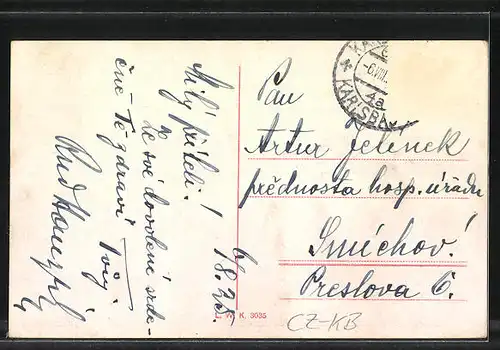 Milý příteli!
Ze své dovolené srde-
čně Tě zdraví
Tvůj
6/
/8.25.
Pan
Artur Jelenek
přednosta hosp. úřadu
Smíchov!
Preslova 6.
KARLSBA
-6.VIII.
4a
L. W. K. 3035
CZ-KB